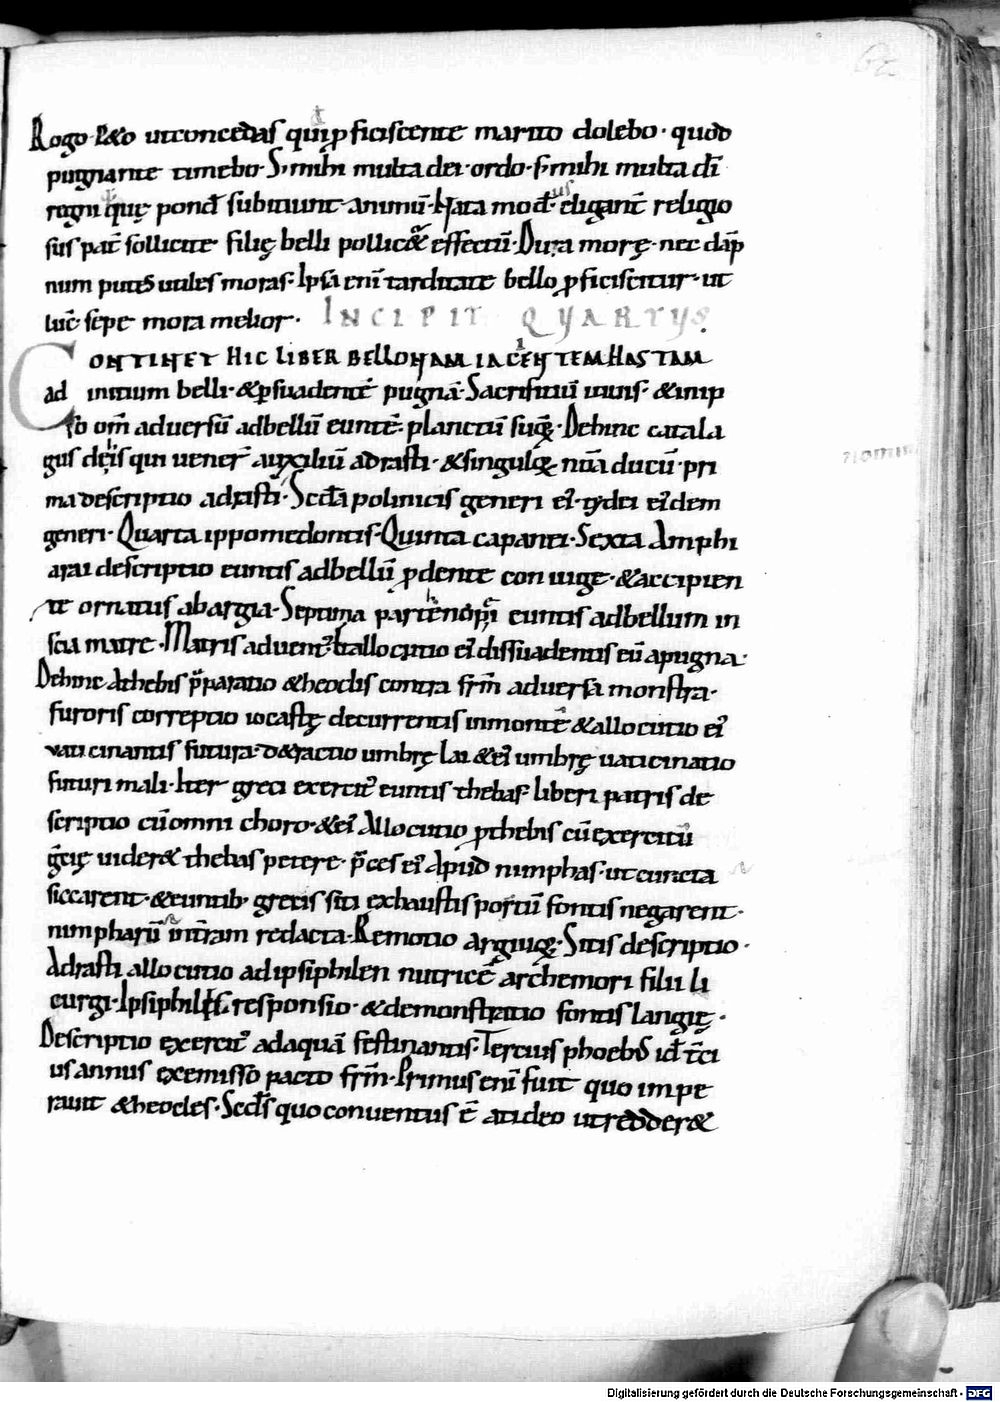 Rogo· P&o utconcedas qui ꝓficiscente marito dolebo· quod
pugnante timebo· S; mihi multa dei· ordo· s; mihi multa dn̄i
regni quę pond̄ subitiunt animū· Hata mod̄ eligant̄ religio
sus pat̄ sollicite filię belli pollic& effectū· Dura morę· nec dāp
num putes utiles moras· Ipsa enī tarditate bello ꝓficiscitur· ut
luc̄· sepe mora melior· INCIPIT QVARTVS·
CONTINET HIC LIBER BELLONAM IACENTEM HASTAM
ad initium belli· &ꝑsuadentē pugnā· Sacrificiū iouis· &inip
so om̄ adversū adbellū euntē· planctū suoꝝ· Dehinc catala
gus dec̄is qui uener̄ auxiliū adrasti· &singuloꝝ nūa ducū· pri
ma descriptio adrasti· Scd̄a polinicis generi ei᷒· tydei ei᷒dem
generi· Quarta ippomedontis· Quinta capanei· Sexta Amphi
arai descriptio euntis adbellū ꝓdente coniuge· &accipien
te ornatus abargia· Septima partēnopei euntis adbellum in
scia matre· Matris aduent᷒ &allocutio ei᷒ dissuadentis eū apugna·
Dehinc Athebis p̄paratio &heoclis contra frm̄ aduersa monstra·
furoris correptio iocastę decurrentis inmontē &allocutio ei᷒
uaticinantis futura· d&ractio umbrę Lai &ei᷒ umbrę uaticinatio
futuri mali· Iter greci exercit᷒ euntis thebas· liberi patris de
scriptio cūomni choro· &ei᷒ Allocutio ꝓthebis cū exercitū
g̃cię uider& thebas petere· p̄ces ei᷒ Apud nimphas· ut cuncta
siccarent· &euntib᷒ grecis siti exhaustis potū fontis negarent·
nimpharū intr̄am redacta· Remotio argiuoꝝ· Sitis descriptio·
Adrasti allocutio ad ipsiphilen nutricē archemori filii li
curgi· Ipsiphilę responsio· &demonstratio fontis langię·
Descriptio exercit᷒ adaquā festinantis· Tercius phoeb᷒ id̄ t̄ci
us annus exemisso pacto frm̄· Primus enī fuit quo impe
rauit &heocles· Scd̄s quo conuentus ē atideo utredder&
nomin
Digitalisierung gefördert durch die Deutsche Forschungsgemeinschaft - DFG